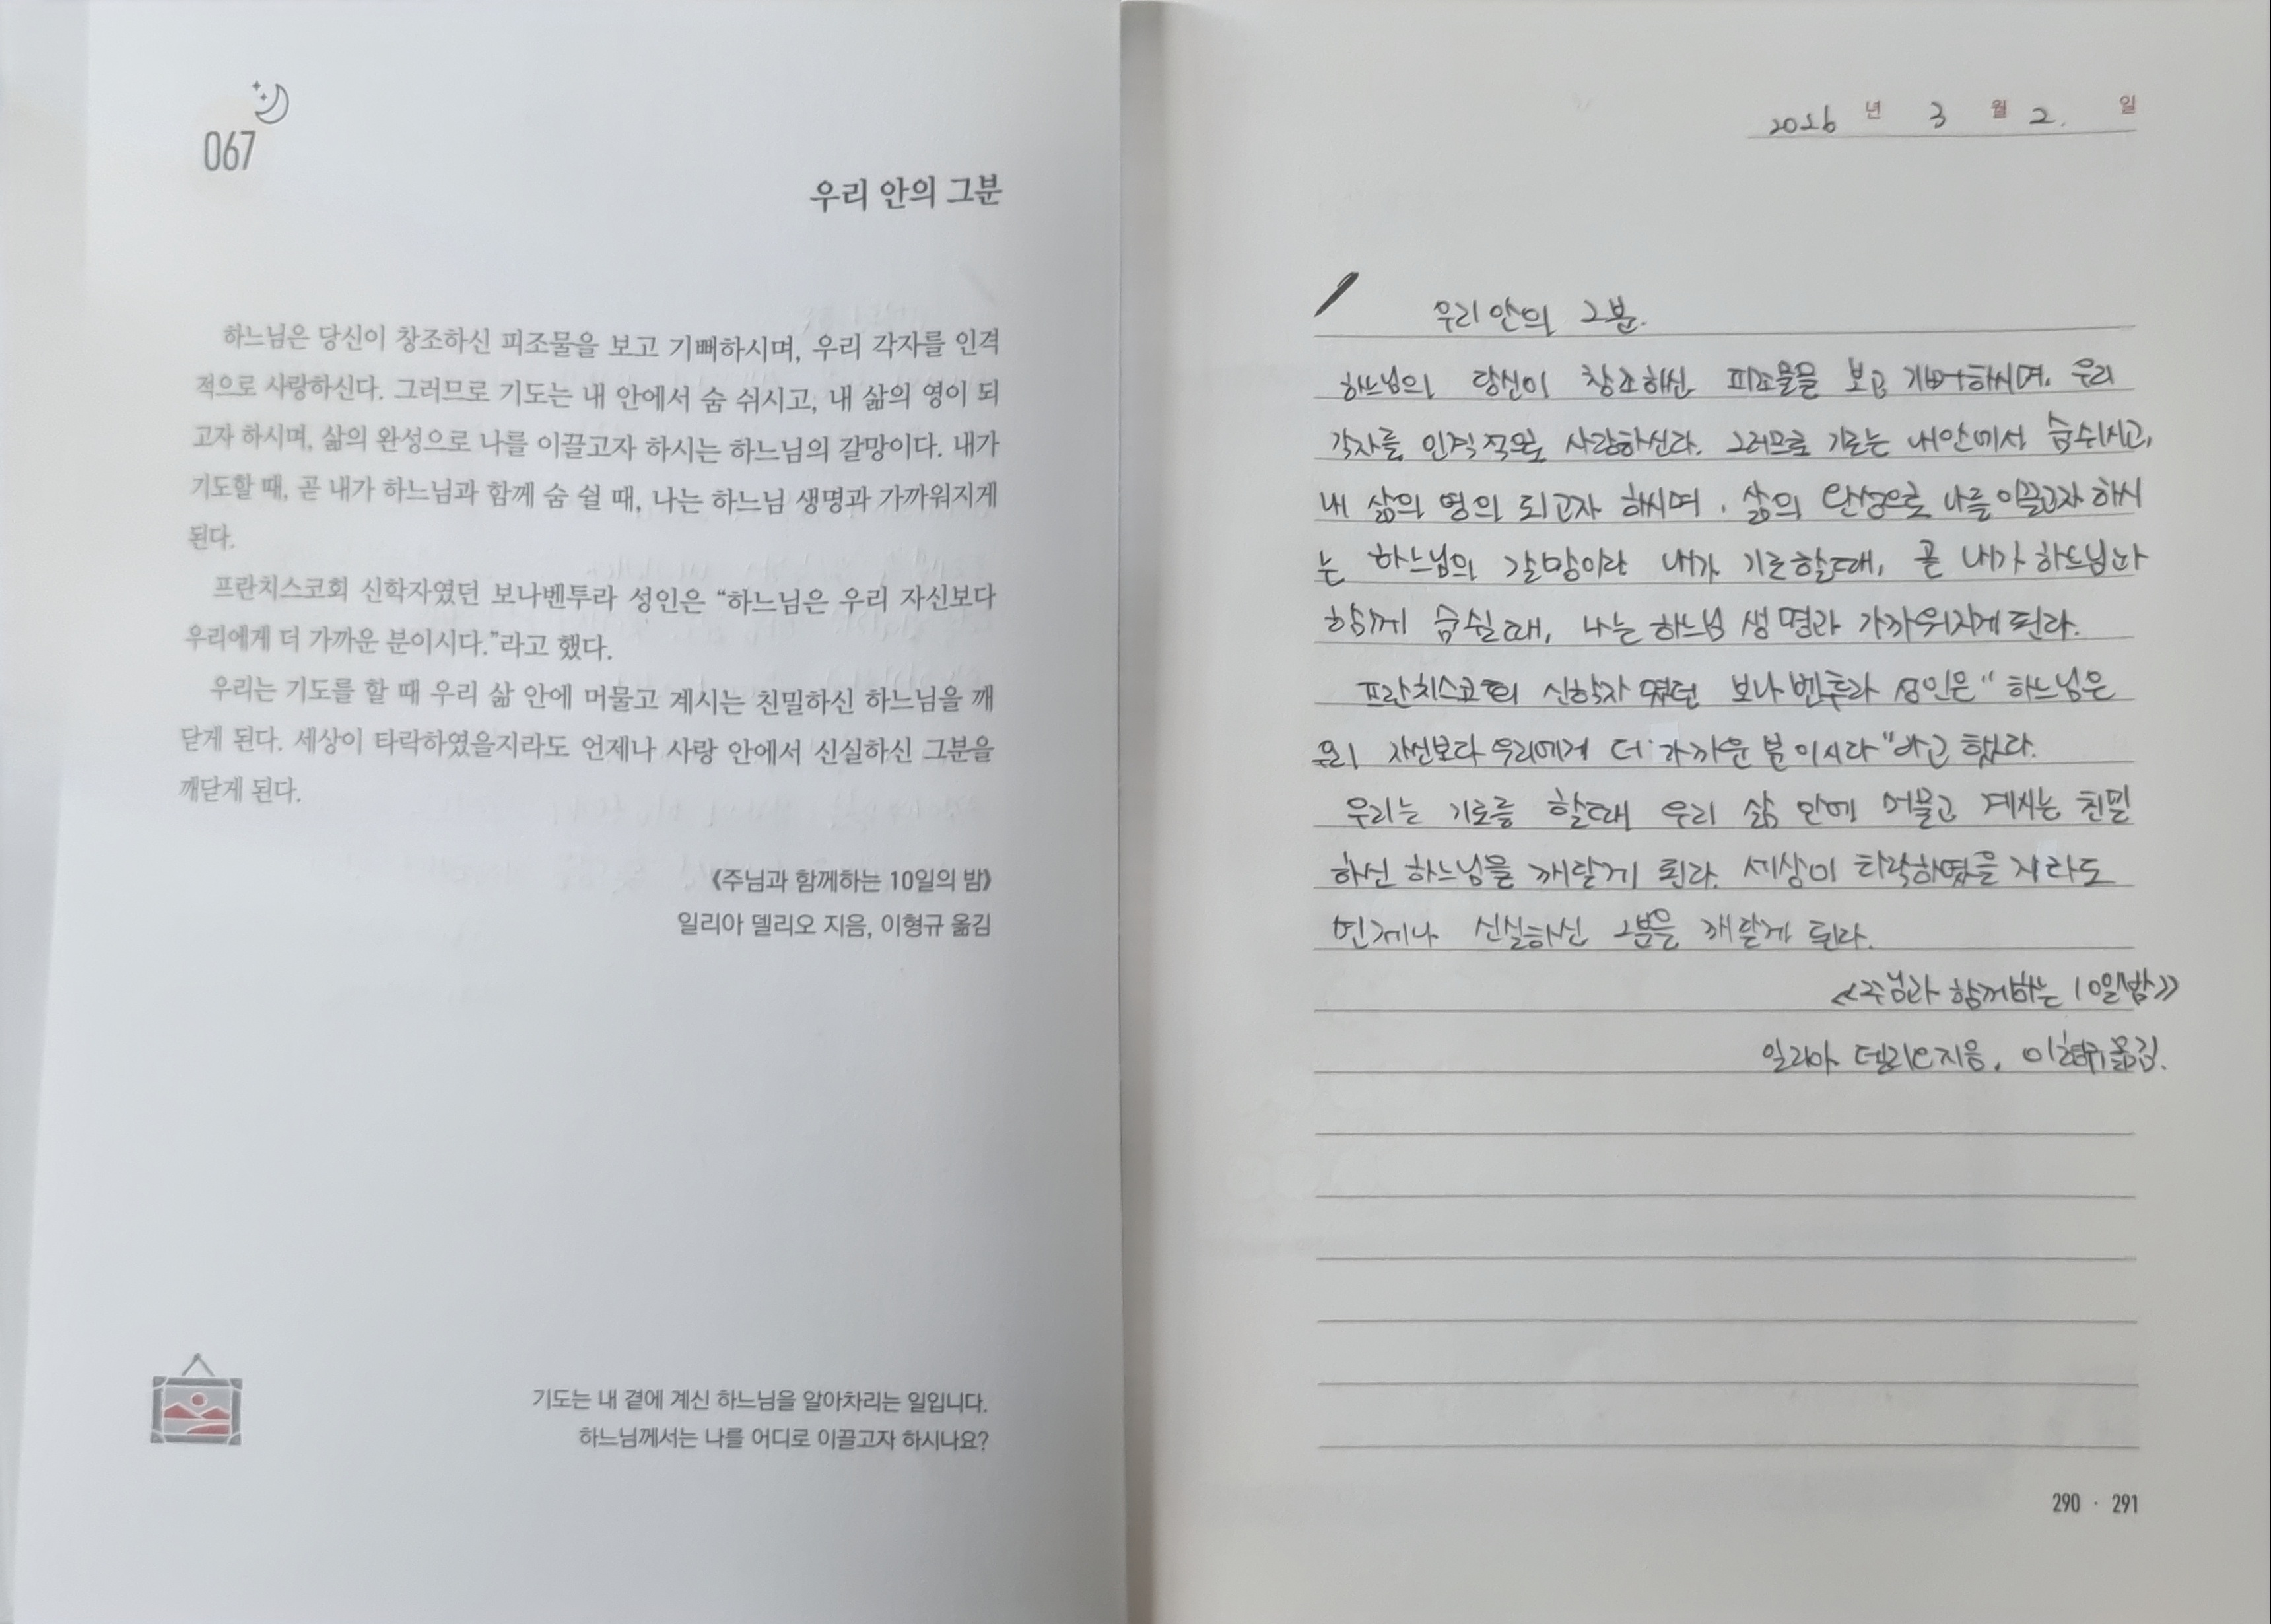 067
우리 안의 그분
하느님은 당신이 창조하신 피조물을 보고 기뻐하시며, 우리 각자를 인격
적으로 사랑하신다. 그러므로 기도는 내 안에서 숨 쉬시고, 내 삶의 영이 되
고자 하시며, 삶의 완성으로 나를 이끌고자 하시는 하느님의 갈망이다. 내가
기도할 때, 곧 내가 하느님과 함께 숨 쉴 때, 나는 하느님 생명과 가까워지게
된다.
프란치스코회 신학자였던 보나벤투라 성인은 “하느님은 우리 자신보다
우리에게 더 가까운 분이시다.”라고 했다.
우리는 기도를 할 때 우리 삶 안에 머물고 계시는 친밀하신 하느님을 깨
닫게 된다. 세상이 타락하였을지라도 언제나 사랑 안에서 신실하신 그분을
깨닫게 된다.
《주님과 함께하는 10일의 밤》
일리아 델리오 지음, 이형규 옮김
기도는 내 곁에 계신 하느님을 알아차리는 일입니다.
하느님께서는 나를 어디로 이끌고자 하시나요?
2026 년 3 월 2. 일
우리 안의 그분.
하느님의 당신이 창조하신 피조물을 보고 기뻐하시며, 우리
각자를 인격적으로 사랑하신다. 그러므로 기도는 내안에서 숨쉬시고,
내 삶의 영의 되고자 하시며, 삶의 완성으로 나를 이끌고자 하시
는 하느님의 갈망이다 내가 기도할때, 곧 내가 하느님과
함께 숨쉴때, 나는 하느님 생명과 가까워지게 된다.
프란치스코회 신학자였던 보나벤투라 성인은 “하느님은
우리 자신보다 우리에게 더 가까운 분이시다”라고 했다.
우리는 기도를 할때 우리 삶 안에 머물고 계시는 친밀
하신 하느님을 깨닫게 된다. 세상이 타락하였을지라도
언제나 신실하신 그분을 깨닫게 된다.
《주님과 함께하는 10일밤》
일리아 델리오지음, 이형규옮김.
290 · 291